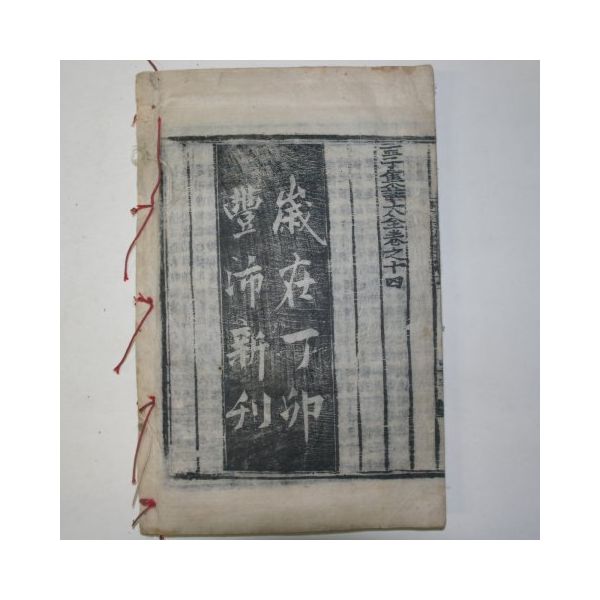 孟子集註大全卷之十四
歲在丁卯
豐沛新刊